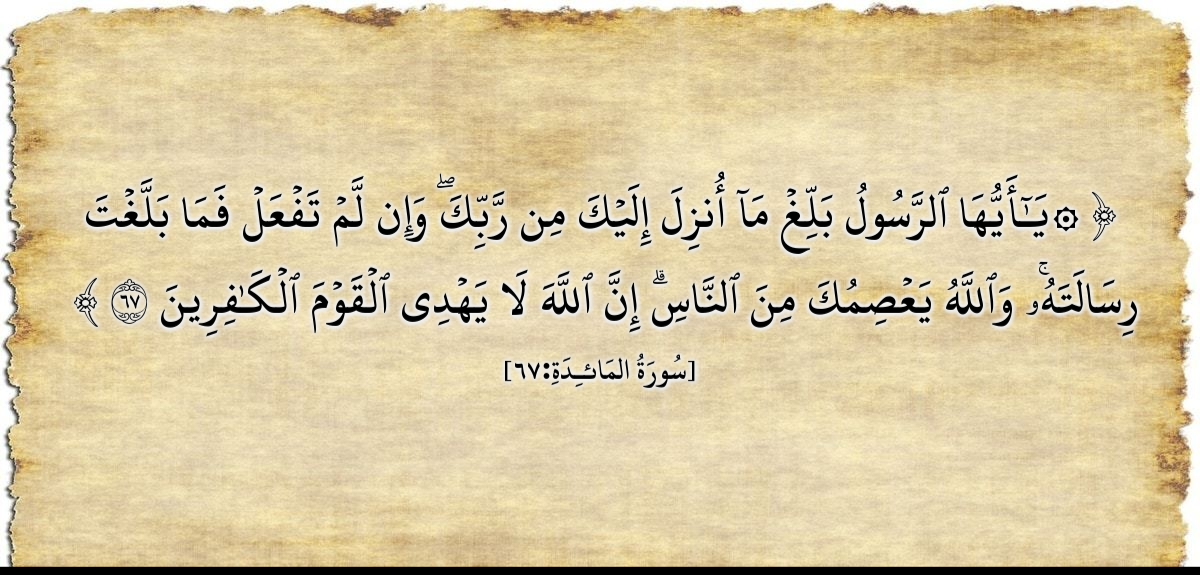 ﴿ ۞ يَـٰٓأَيُّهَا ٱلرَّسُولُ بَلِّغۡ مَآ أُنزِلَ إِلَيۡكَ مِن رَّبِّكَۖ وَإِن لَّمۡ تَفۡعَلۡ فَمَا بَلَّغۡتَ
رِسَالَتَهُۥۚ وَٱللَّهُ يَعۡصِمُكَ مِنَ ٱلنَّاسِۗ إِنَّ ٱللَّهَ لَا يَهۡدِى ٱلۡقَوۡمَ ٱلۡكَـٰفِرِينَ ٦٧ ﴾
[سُورَةُ المَائـِدَةِ:٦٧]